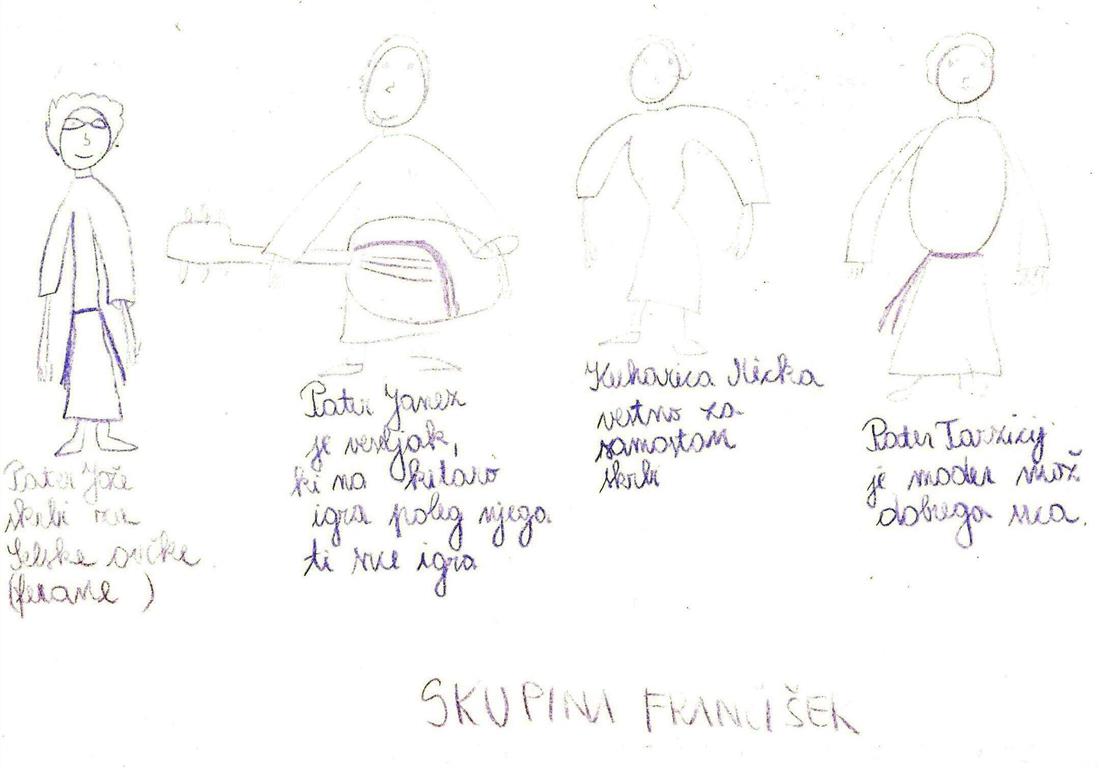 Pater Jože
skrbi za
Selške ovčke
(farane )
Pater Janez
je veseljak,
ki na kitaro
igra poleg njega
ti srce igra
Kuharica Micka
vestno za
samostan
skrbi
Pater Tarzicij
je moder mož
dobrega srca.
SKUPINA FRANČIŠEK